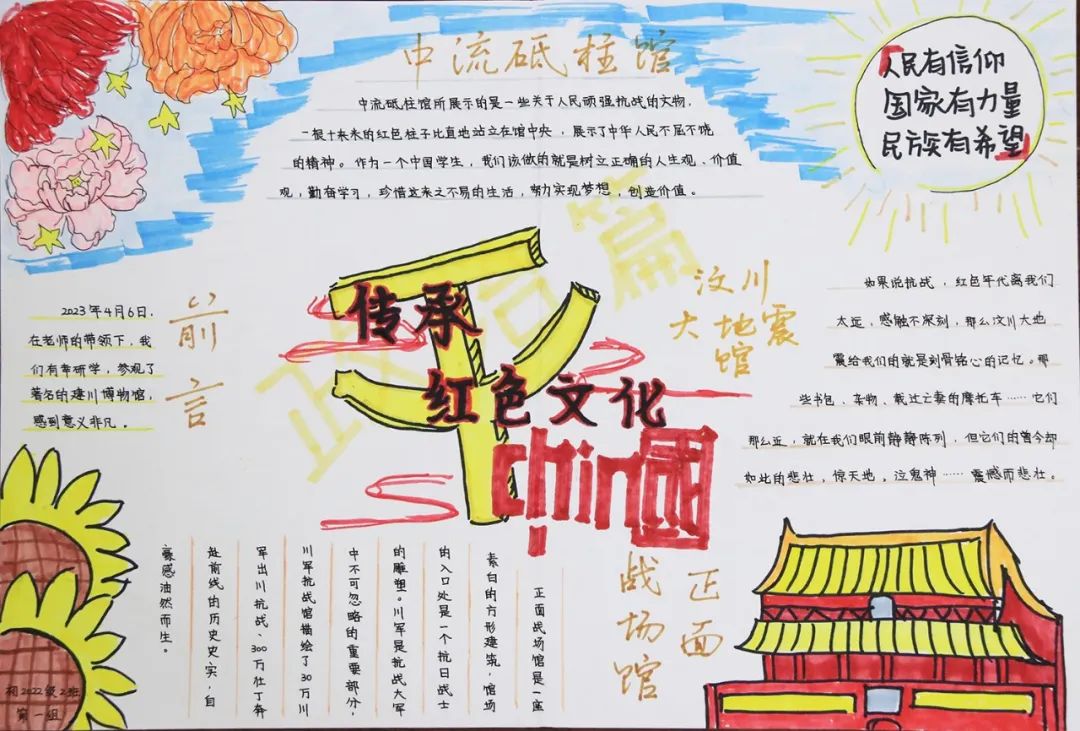 中流砥柱馆
中流砥住馆所展示的是一些关于人民顽强抗战的文物,
一根十来米的红色柱子比直地站立在馆中央，展示了中华人民不屈不饶
的精神。作为一个中国学生，我们该做的就是树立正确的人生观、价值
观，勤奋学习，珍惜这来之不易的生活，努力实现梦想，创造价值。
人民有信仰
国家有力量
民族有希望
前言
2023年4月6日，
在老师的带领下，我
们有幸研学，参观了
著名的建川博物馆，
感到意义非凡。
传承
红色文化
chin国
汶川
大地震
馆
如果说抗战，红色年代离我们
太远，感触不深刻，那么汶川大地
震给我们的就是刻骨铭心的记忆。那
些书包、杂物、载过亡妻的摩托车……它们
那么近，就在我们眼前静静陈列，但它们的曾今却
如此的悲壮，惊天地，泣鬼神……震感而悲壮。
正面
战场馆
正面战场馆是一座
素白的方形建筑，馆场
的入口处是一个抗日战士
的雕塑。川军是抗战大军
中不可忽略的重要部分，
川军抗战馆描绘了30万川
军出川抗战、300万壮丁奔
赴前线的历史史实，自
豪感油然而生。
初2022级2班
第一组